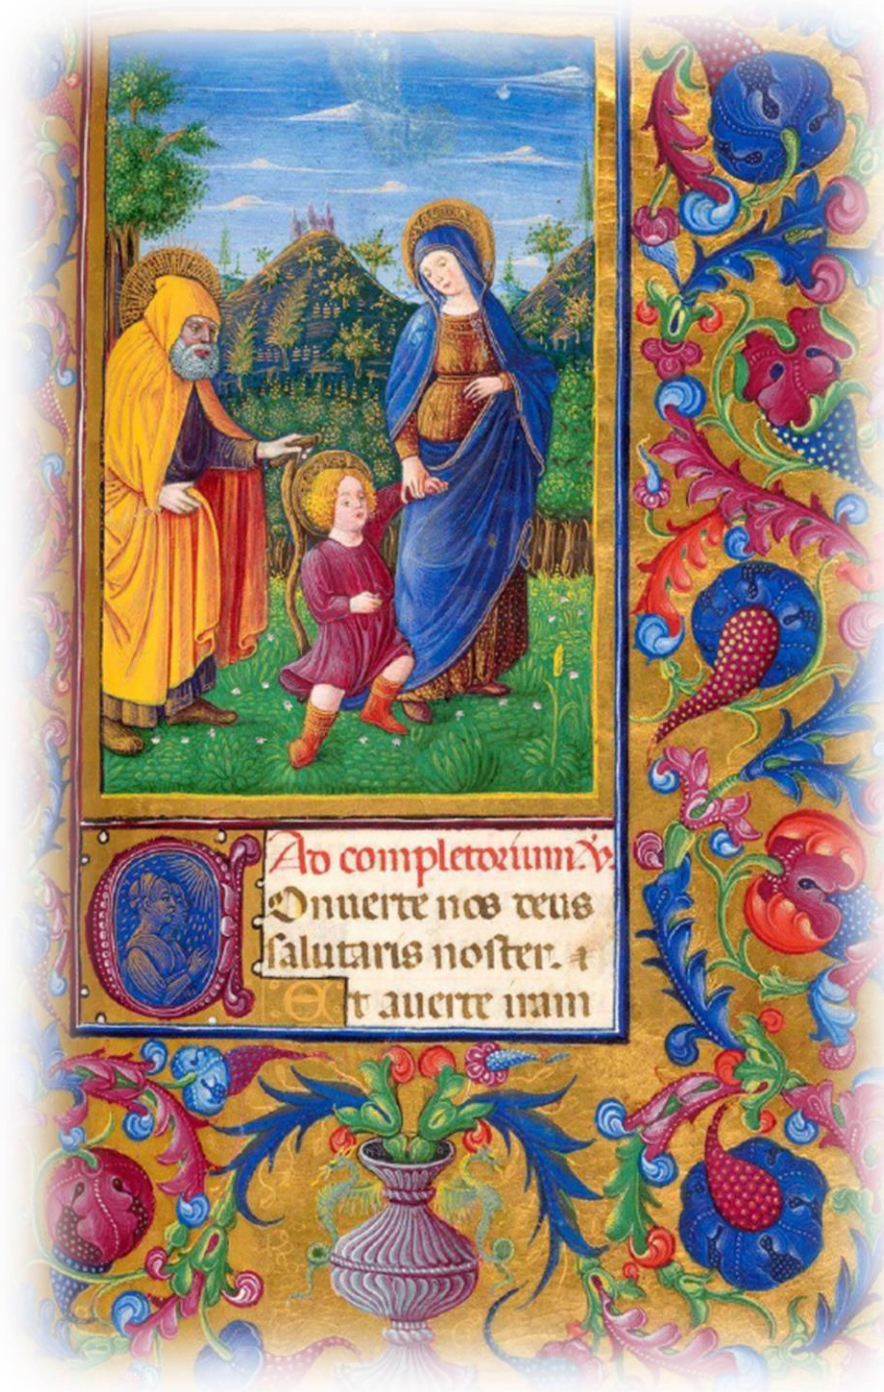 Ad completorium. V.
Conuerte nos deus
salutaris noster. ⁊
Et auerte iram